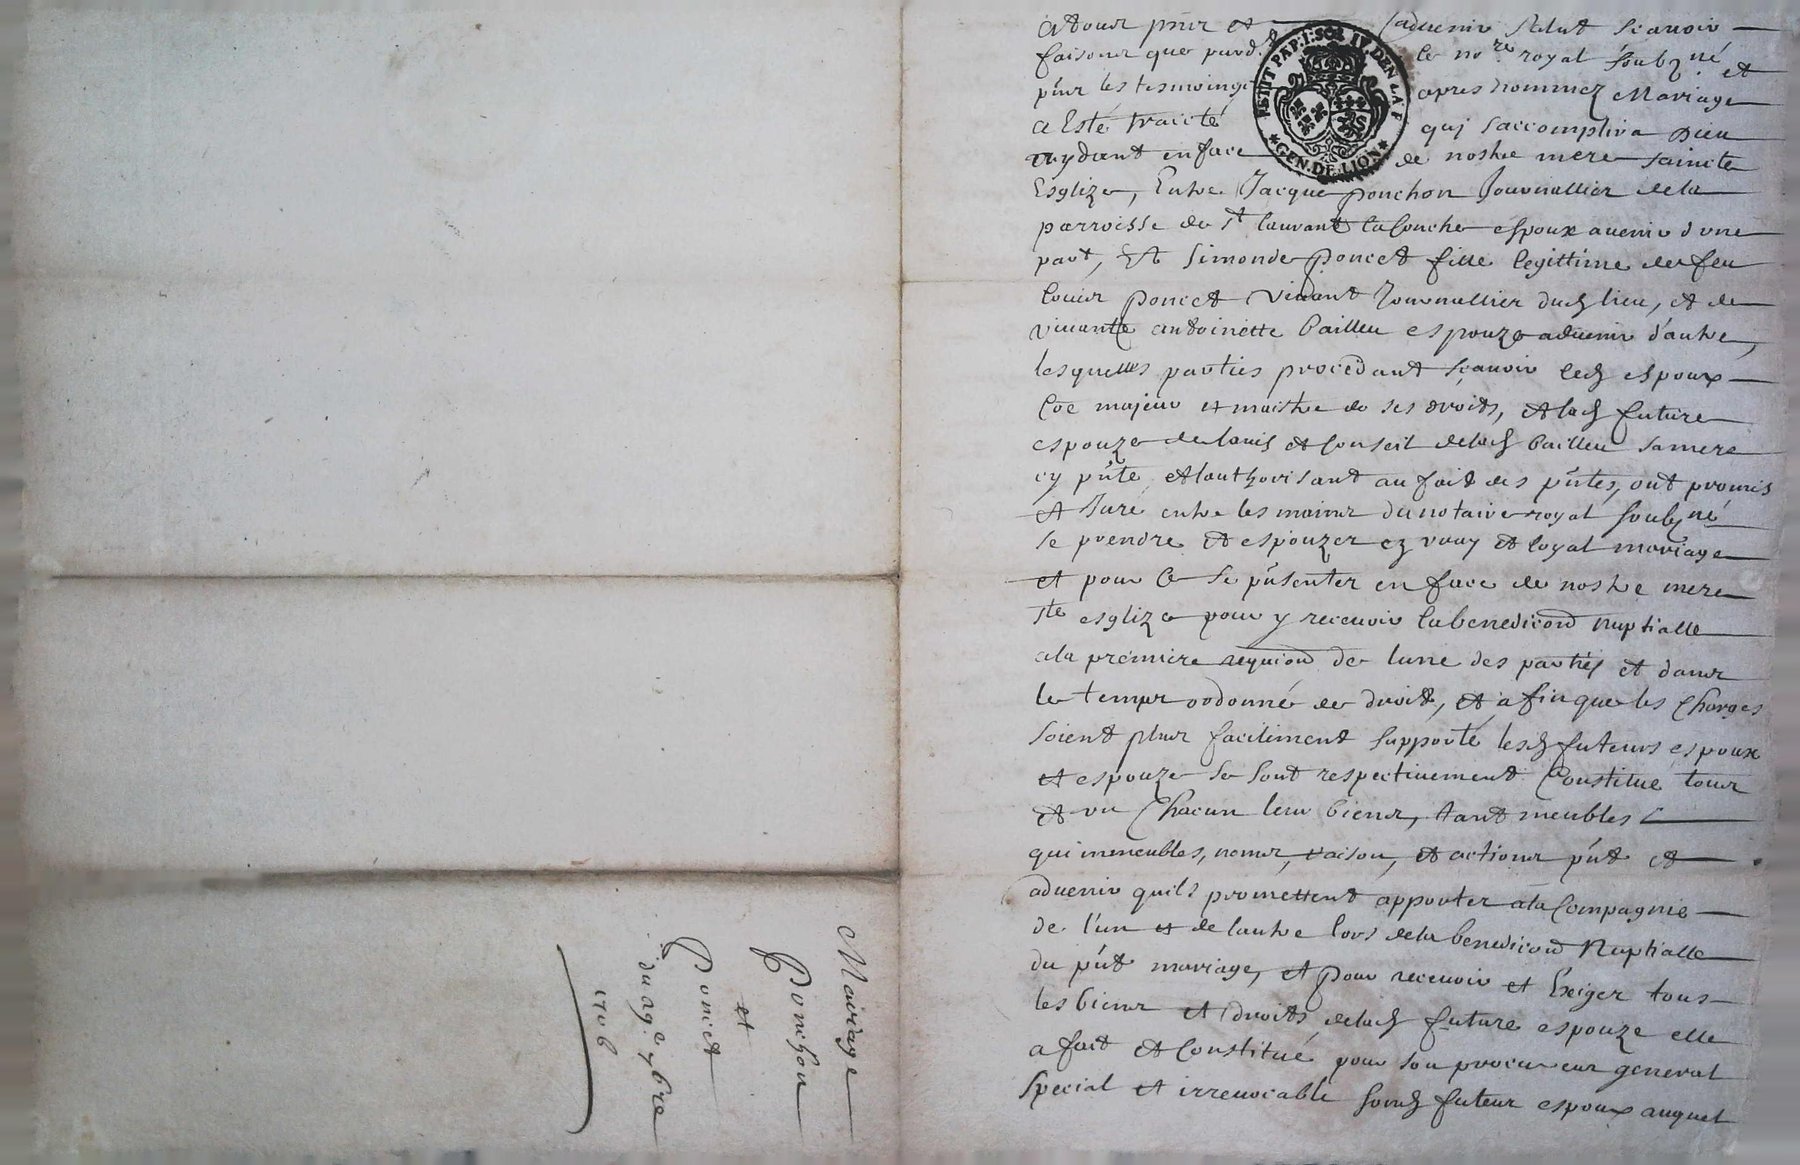 A tous pñts et advenir salut sçavoir
faisons que pard.t le no.re royal soubz.né
pñts les tesmoings apres nommez Mariage et
a Esté traicté quj saccomplira Dieu
aydant en face de nostre mere saincte
Esglize, Entre Jacque ponchon Journallier de la
parroisse de S.t laurant la Conche espoux avenir d'une
part, Et Simonde poncet fille legittime de feu
Louis poncet vivant Journallier dud. lieu, et de
vivante antoinette bailleu espouze advenir d'autre,
lesquelles parties procedant sçavoir led. espoux
coe majeur et maistre de ses droits, et lad. future
espouze de lavis et Conseil de lad. bailleu sa mere
cy pñte, et lauthorisant au fait des pñtes, ont promis
et Juré entre les mains du notaire royal soubz.né
se prendre et espouzer ez vray et loyal mariage
et pour ce se pñsenter en face de nostre mere
s.te esglize pour y recevoir la benedicoñ nuptialle
a la premiere requioñ de lune des parties et dans
le temps ordonné de droit, et afin que les Charges
soient plus facilement supporté lesd. futeurs espoux
et espouze se sont respectivement Constitué tous
et un Chacun leur biens, tant meubles
qui immeubles, noms, raison, et actions pñt et
advenir quils promettent apporter a la Compagnie
de l'un et de lautre lors de la benedicoñ Nuptialle
du pñt mariage, et pour recevoir et Exiger tous
les biens et droits de lad. future espouze elle
a fait et Constitué pour son procureur general
special et irrevocable sond. futeur espoux auquel
PETIT PAP. 1. SOL IV. DEN LA F
GEN. DE LION
Mariage
Ponchon
et
Poncet
du 29.e 7bre
1706